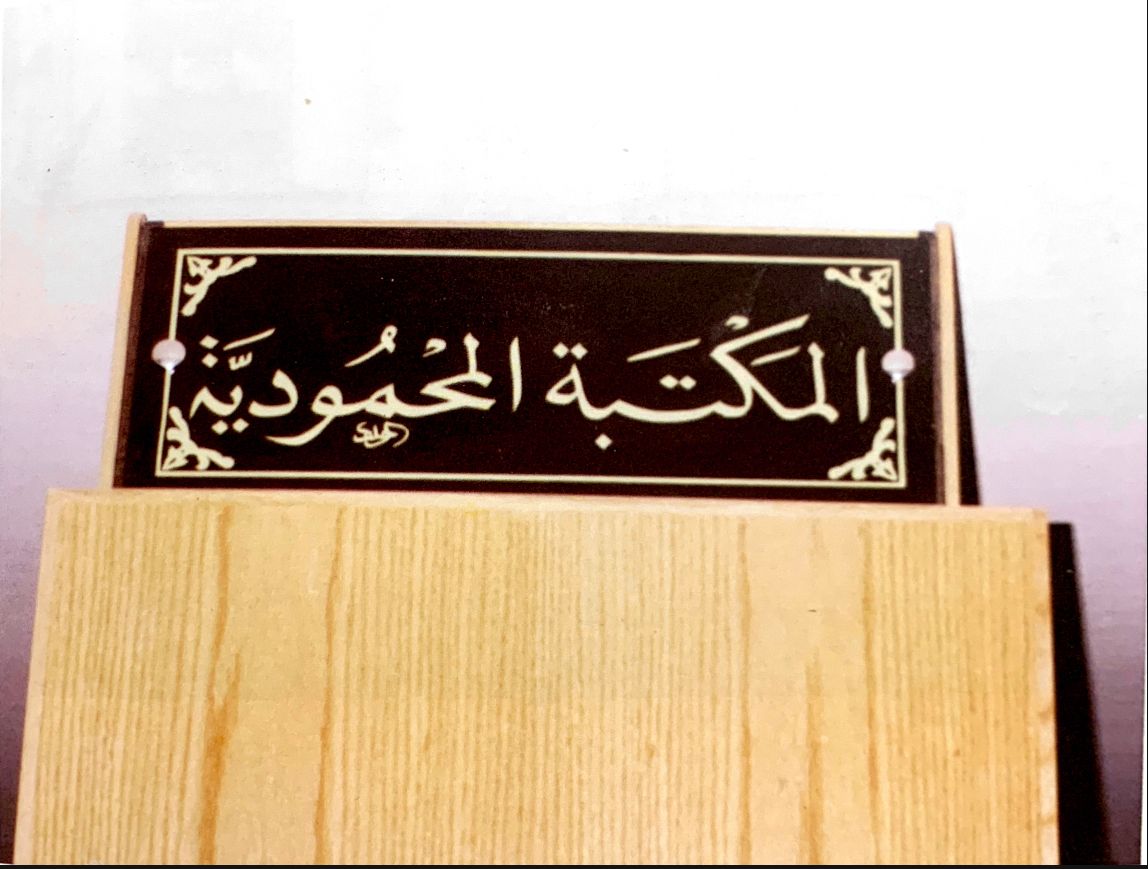 المَكْتَبَة المحْمُوديَّة